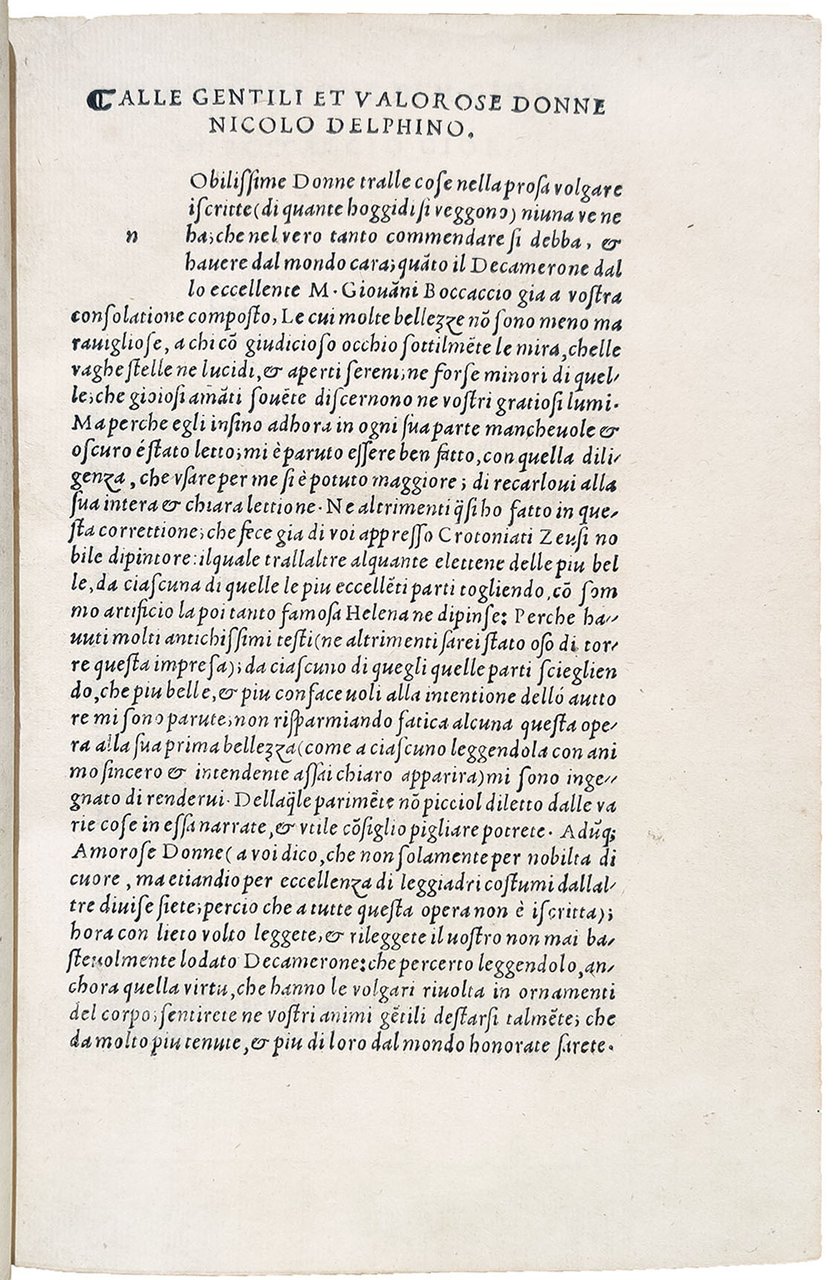 ☾ALLE GENTILI ET VALOROSE DONNE
NICOLO DELPHINO.
Obilissime Donne tralle cose nella prosa volgare
iscritte (di quante hoggidi si veggono) niuna ve ne
n
ha; che nel vero tanto commendare si debba, &
havere dal mondo cara; quãto il Decamerone dal
lo eccellente M. Giouãni Boccaccio gia a vostra
consolatione composto, Le cui molte bellezze nõ sono meno ma
ravigliose, a chi cõ giudicioso occhio sottilmẽte le mira, chelle
vaghe stelle ne lucidi, & aperti sereni; ne forse minori di quel-
le; che gioiosi amãti souẽte discernono ne vostri gratiosi lumi.
Ma perche egli insino adhora in ogni sua parte manchevole &
oscuro é stato letto; mi è paruto essere ben fatto, con quella dili-
genza, che vsare per me si è potuto maggiore; di recarloui alla
sua intera & chiara lettione. Ne altrimenti q̃si ho fatto in que-
sta correttione; che fece gia di voi appresso Crotoniati Zeusi no
bile dipintore: ilquale trallaltre alquante elettene delle piu bel
le, da ciascuna di quelle le piu eccellẽti parti togliendo, cõ som
mo artificio la poi tanto famosa Helena ne dipinse: Perche ha-
uuti molti antichissimi testi (ne altrimenti sarei stato oso di tor-
re questa impresa); da ciascuno di quegli quelle parti scieglien
do, che piu belle, & piu confacevoli alla intentione delló autto
re mi sono parute; non risparmiando fatica alcuna questa ope-
ra alla sua prima bellezza (come a ciascuno leggendola con ani
mo sincero & intendente assai chiaro apparira) mi sono inge-
gnato di renderui. Dellaq̃le parimẽte nõ picciol diletto dalle va
rie cose in essa narrate, & vtile cõsiglio pigliare potrete. Adũq;
Amorose Donne (a voi dico, che non solamente per nobilta di
cuore, ma etiandio per eccellenza di leggiadri costumi dallal-
tre divise siete; percio che a tutte questa opera non è iscritta);
hora con lieto volto leggete, & rileggete il uostro non mai ba-
stevolmente lodato Decamerone: che percerto leggendolo, an-
chora quella virtu, che hanno le volgari rivolta in ornamenti
del corpo; sentirete ne vostri animi gẽtili destarsi talmẽte; che
da molto piu tenute, & piu di loro dal mondo honorate sarete.